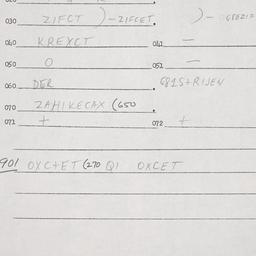 030 ZIFCT )-ZIFCET. )- GBEZI
040 KREXCT 041 -
050 O 051 -
060 DER . G81S+RIJEN
070 ZAHIKECAX (650 .
071 + 072 +
901 OXC+ET (270 QI OXCET